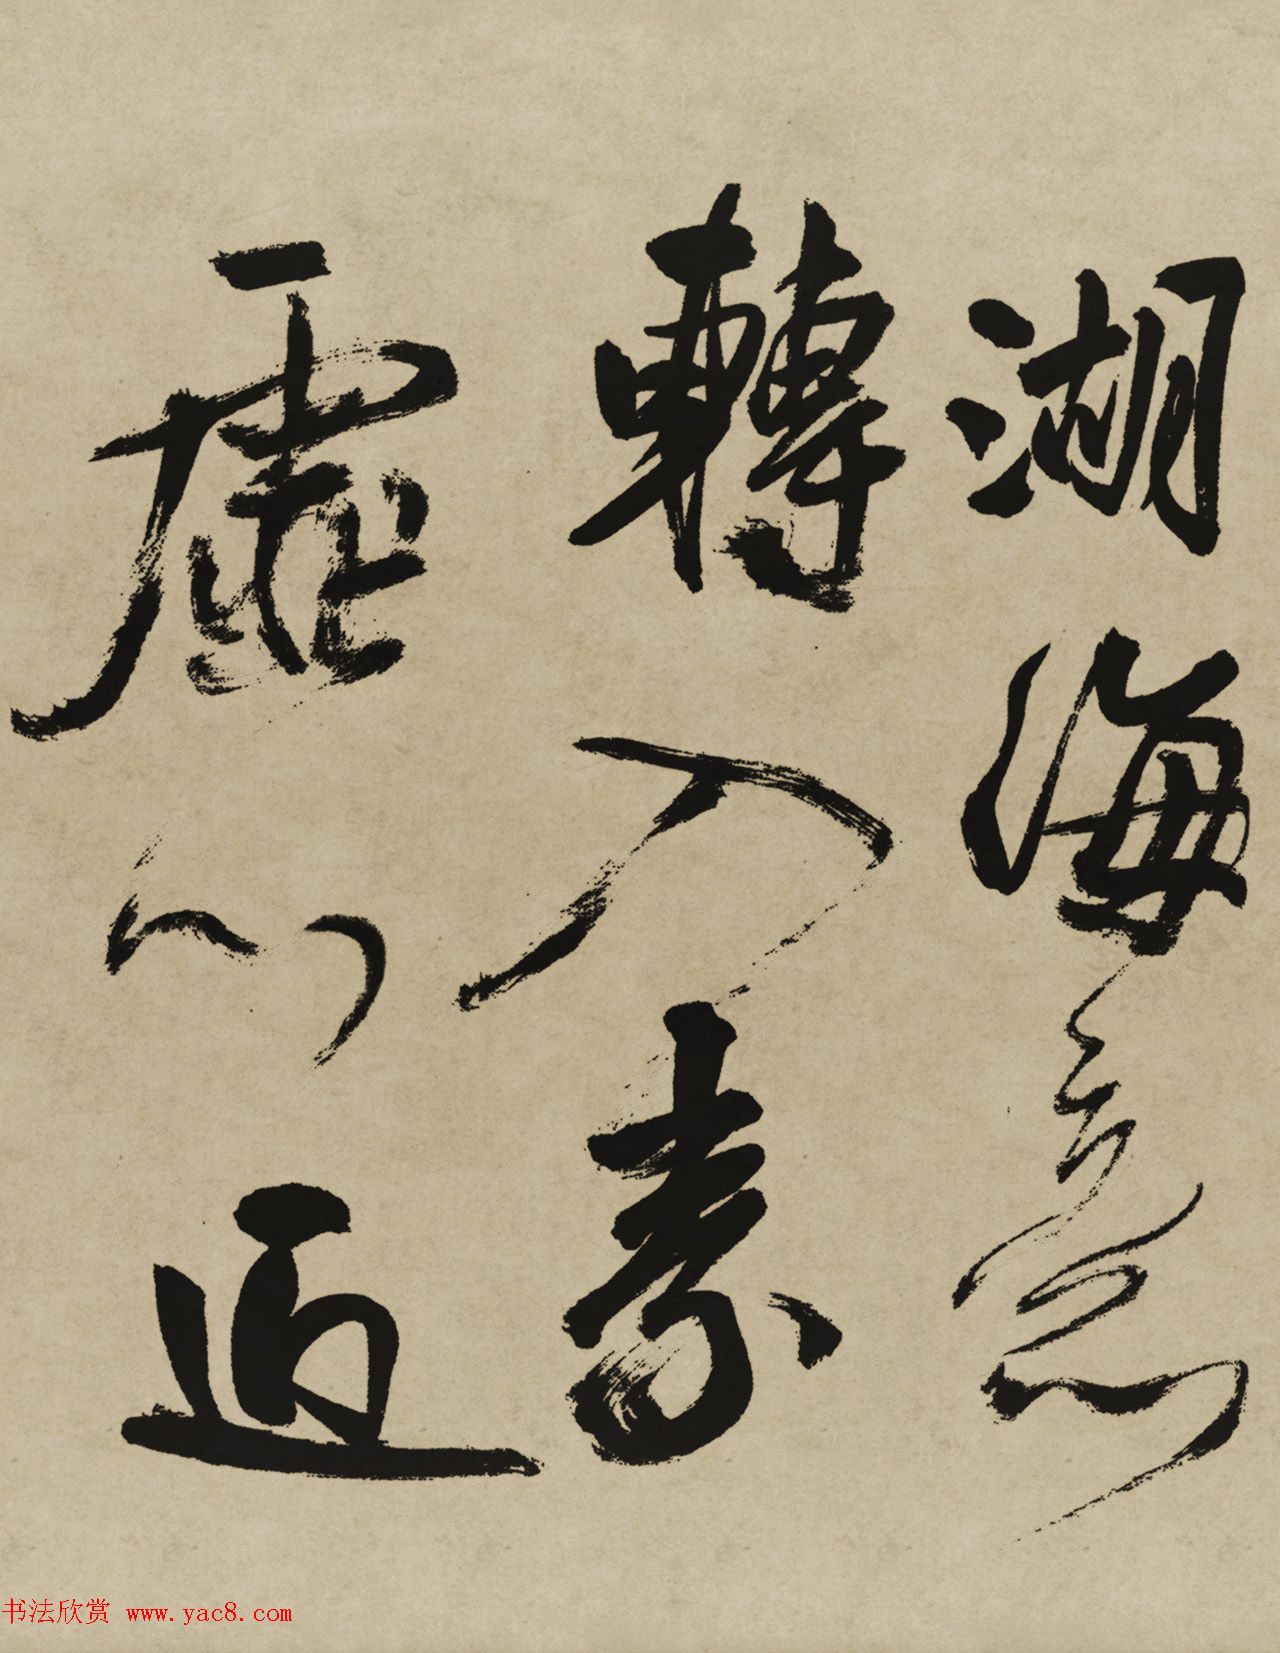 湖海意
轉入素
虛心近
书法欣赏 www.yac8.com